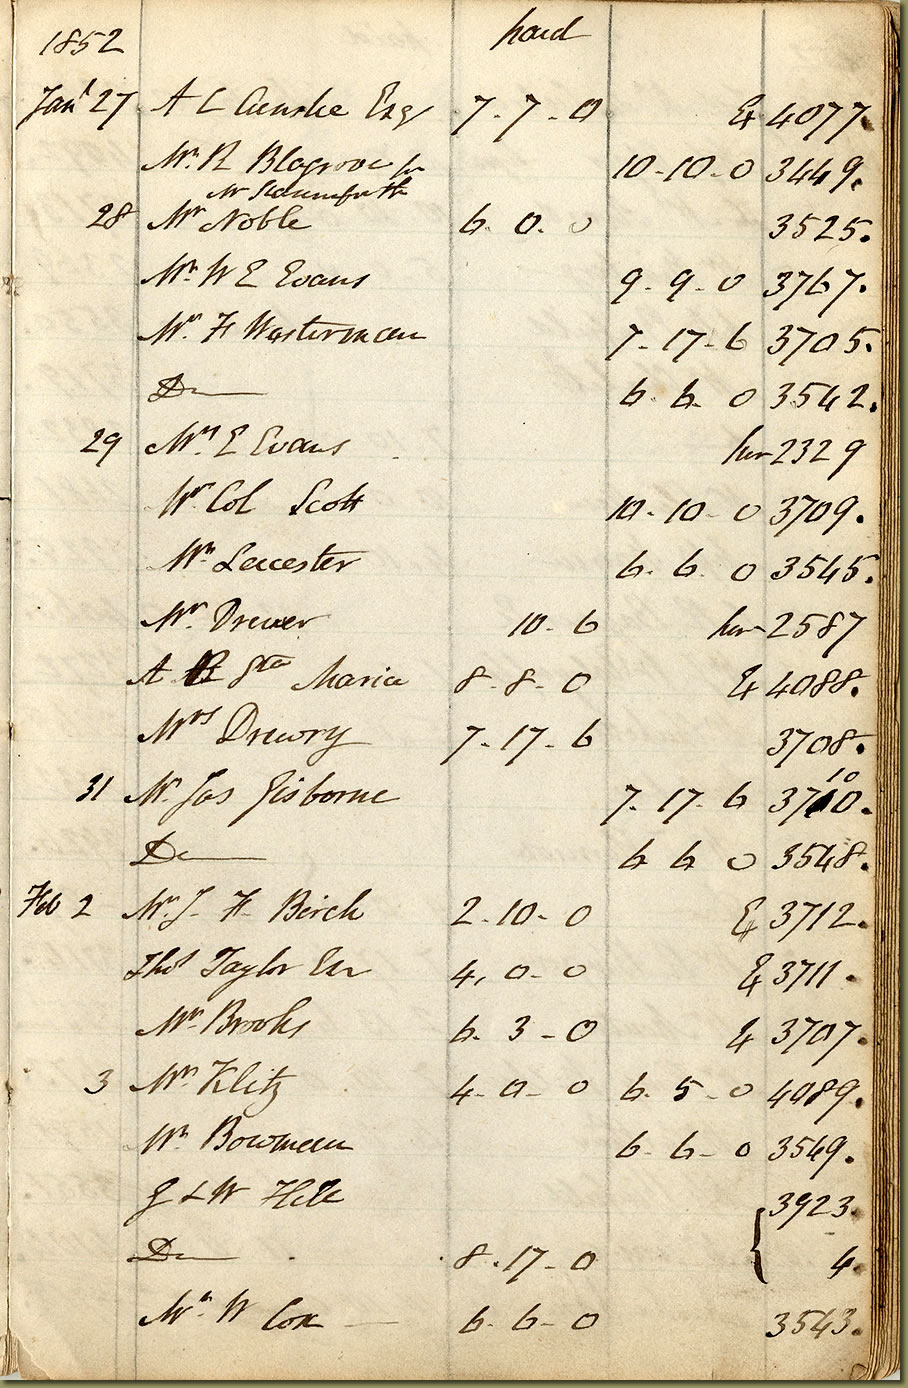 1852 paid
Jany 27 A C Ainslie Esq 7-7-0 E 4077.
Mr. R Blagrove for 10-10-0 3449.
Mr Stainforth
28 Mr Noble 6. 0. 0 3525.
Mr W E Evans 9-9-0 3767.
Mr. H Wasterman 7-17-6 3705.
Do 6. 6. 0 3542.
29 Mrs E Evans her 2329
Mr Col Scott 10-10-0 3709.
Mr Leicester 6. 6. 0 3545.
Mr. Drewer 10-6 her 2587
A Sta Maria 8-8-0 E 4088.
Mrs Drewry 7-17-6 3708.
31 Mr Jas Gisborne 7-17-6 3710.
Do 6 6 0 3548.
Feb 2 Mr J. H. Birch 2-10-0 E 3712.
Thos Taylor Esq 4,0-0 E 3711.
Mr Brooks 6. 3-0 E 3707.
3 Mr Klitz 4-0-0 6. 5-0 4089.
Mr Bowman 6-6-0 3549.
G & W Hill { 3923.
Do 8.17-0 4.
Mr W Cox 6-6-0 3543.